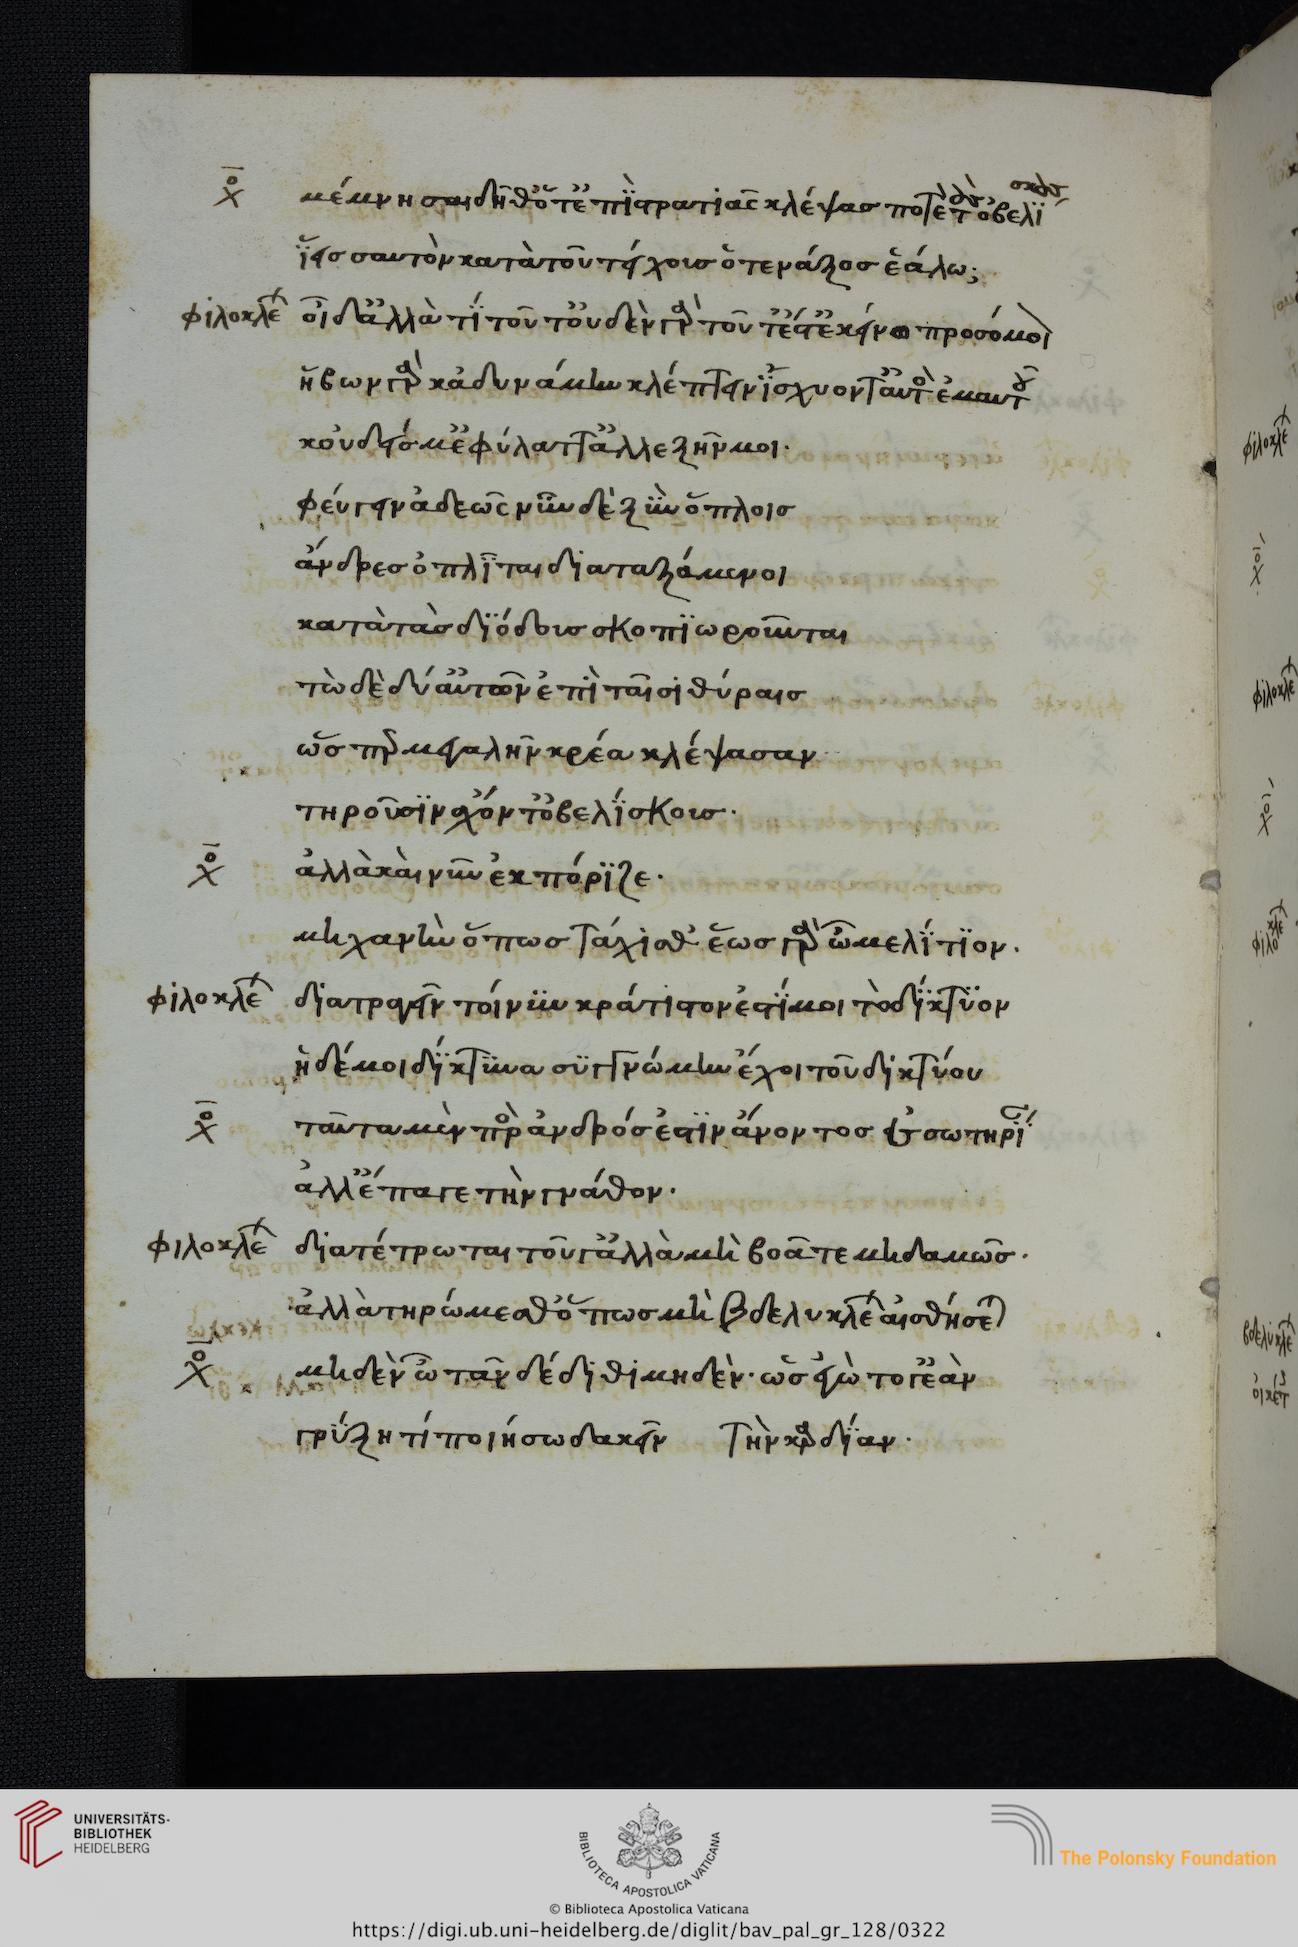 χο μέμνησαι δῆθ' ὅτ' ἐπὶ στρατιᾶς κλέψας ποτὲ τοὺς ὀβελίσκους
ἵεις σαυτὸν κατὰ τοῦ τείχους ὅτε νάξος ἑάλω;
φιλοκλε οἶδ' ἀλλὰ τί τοῦτ' οὐδὲν γὰρ τοῦτ' ἐστ' ἐκείνω προσόμοι
ἥβων γὰρ κἀδυνάμην κλέπτειν ἴσχυον τ' αὐτὸς ἐμαυτοῦ
κοὐδείς μ' ἐφύλαττ' ἀλλ' ἐξῆν μοι·
φεύγειν ἀδεῶς νῦν δὲ ξὺν ὅπλοις
ἄνδρες ὁπλῖται διαταξάμενοι
κατὰ τὰς διόδους σκοπιωροῦνται
τὼ δὲ δύ' αὐτῶν ἐπὶ ταῖσι θύραις
ὥσπερ με γαλῆν κρέα κλέψασαν
τηροῦσιν ἔχοντ' ὀβελίσκους·
χο ἀλλὰ καὶ νῦν ἐκπόριζε·
μηχανὴν ὅπως τάχισθ' ἕως γὰρ ὦ μελίτιον.
φιλοκλε διατραγεῖν τοίνυν κράτιστον ἐστί μοι τὸ δίκτυον
ἡ δέ μοι δίκτυνα συγγνώμην ἔχοι τοῦ δικτύου
χο ταῦτα μὲν πρὸς ἀνδρός ἐστιν ἄνοντος εἰς σωτηρί
ἀλλ' ἔπαγε τὴν γνάθον·
φιλοκλε διατέτρωται τοῦτό γ' ἀλλὰ μὴ βοᾶτε μηδαμῶς·
ἀλλὰ τηρώμεσθ' ὅπως μὴ βδελυκλε αἰσθήσε
χο μηδὲν ὦ τᾶν δέδιθι μηδὲν· ὡς ἐγὼ τοῦτόν γ' ἐὰν
γρύξη τί ποιήσω δακεῖν τὴν καρδίαν·
UNIVERSITÄTS-
BIBLIOTHEK
HEIDELBERG
BIBLIOTECA APOSTOLICA VATICANA
The Polonsky Foundation
© Biblioteca Apostolica Vaticana
https://digi.ub.uni-heidelberg.de/diglit/bav_pal_gr_128/0322